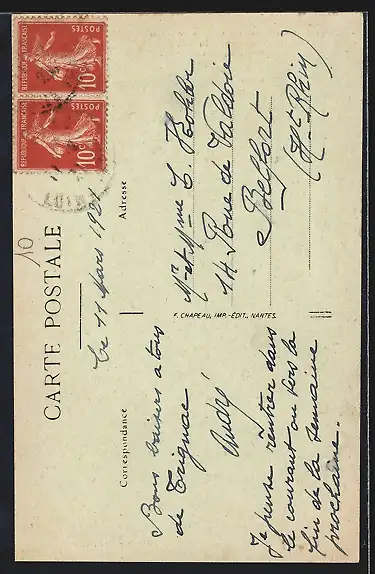 CARTE POSTALE
Correspondance
Adresse
Ce 11 Mars 1921
Bons baisers à tous
de Trignac
André
Je pense rentrer dans
le courant ou vers la
fin de la semaine
prochaine.
F. CHAPEAU, IMP.-ÉDIT., NANTES.
Mr et Mme C. Kohler
14 Rue de Valdoie
Belfort
(Ht-Rhin)
10
REPUBLIQUE FRANÇAISE
POSTES
10c
REPUBLIQUE FRANÇAISE
POSTES
10c